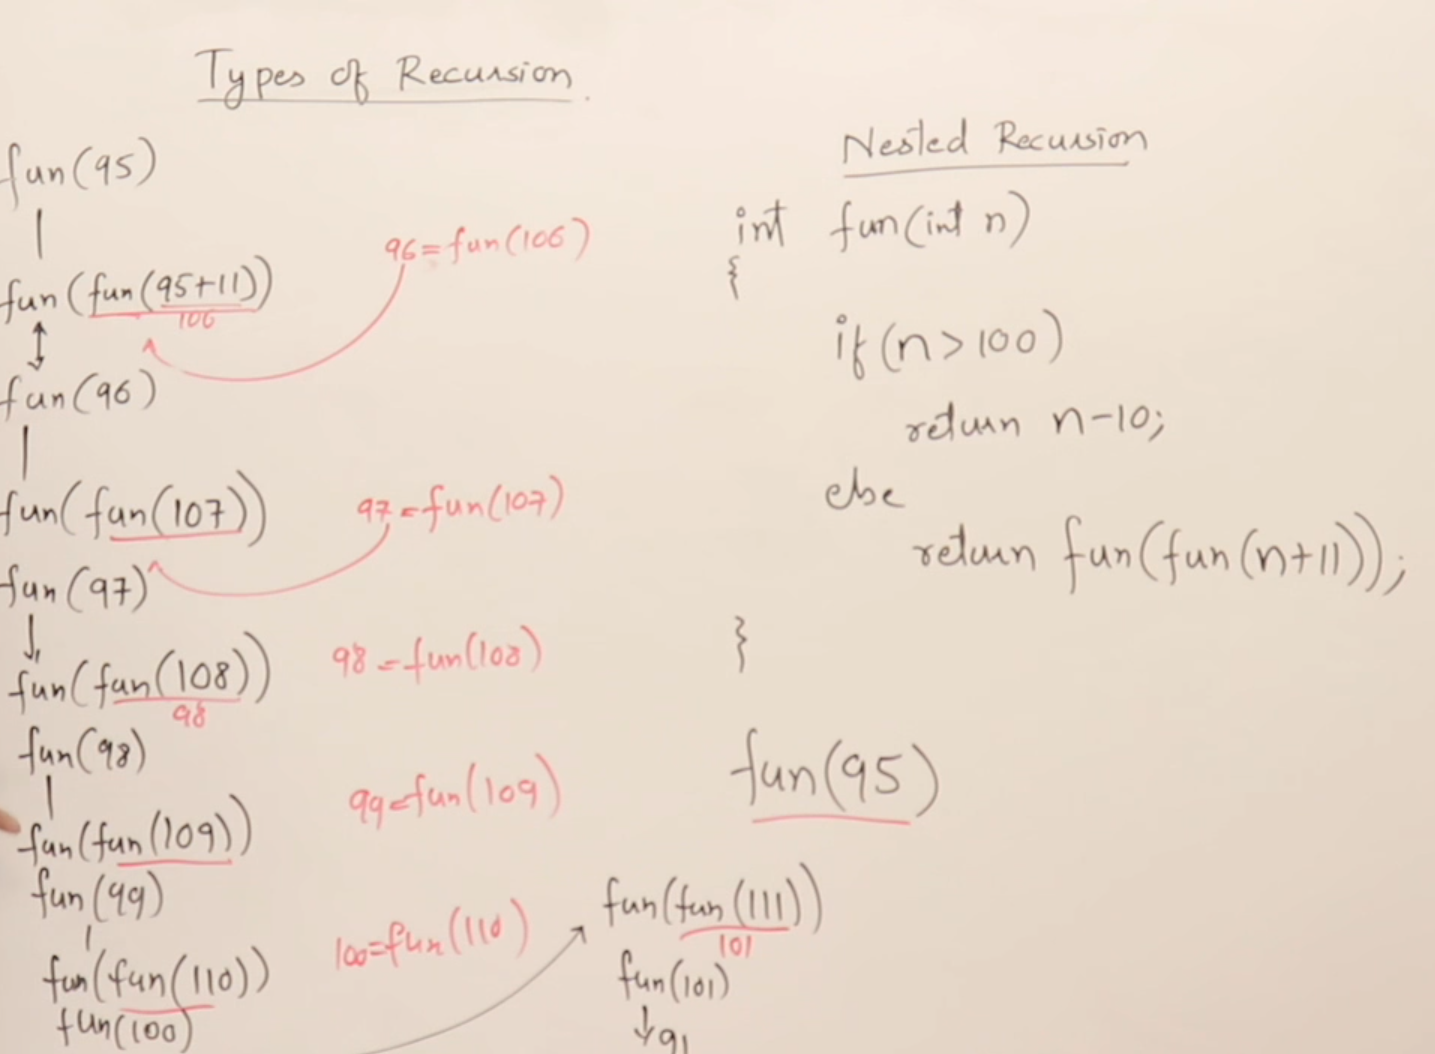 Types of Recursion.
fun(95)
fun(fun(95+11))
106
96=fun(106)
fun(96)
fun(fun(107))
97=fun(107)
fun(97)
fun(fun(108))
98
98=fun(108)
fun(98)
fun(fun(109))
99=fun(109)
fun(99)
fun(fun(110))
100=fun(110)
fun(100)
Nested Recursion
int fun(int n)
{
if(n>100)
return n-10;
else
return fun(fun(n+11));
}
fun(95)
fun(fun(111))
101
fun(101)
91